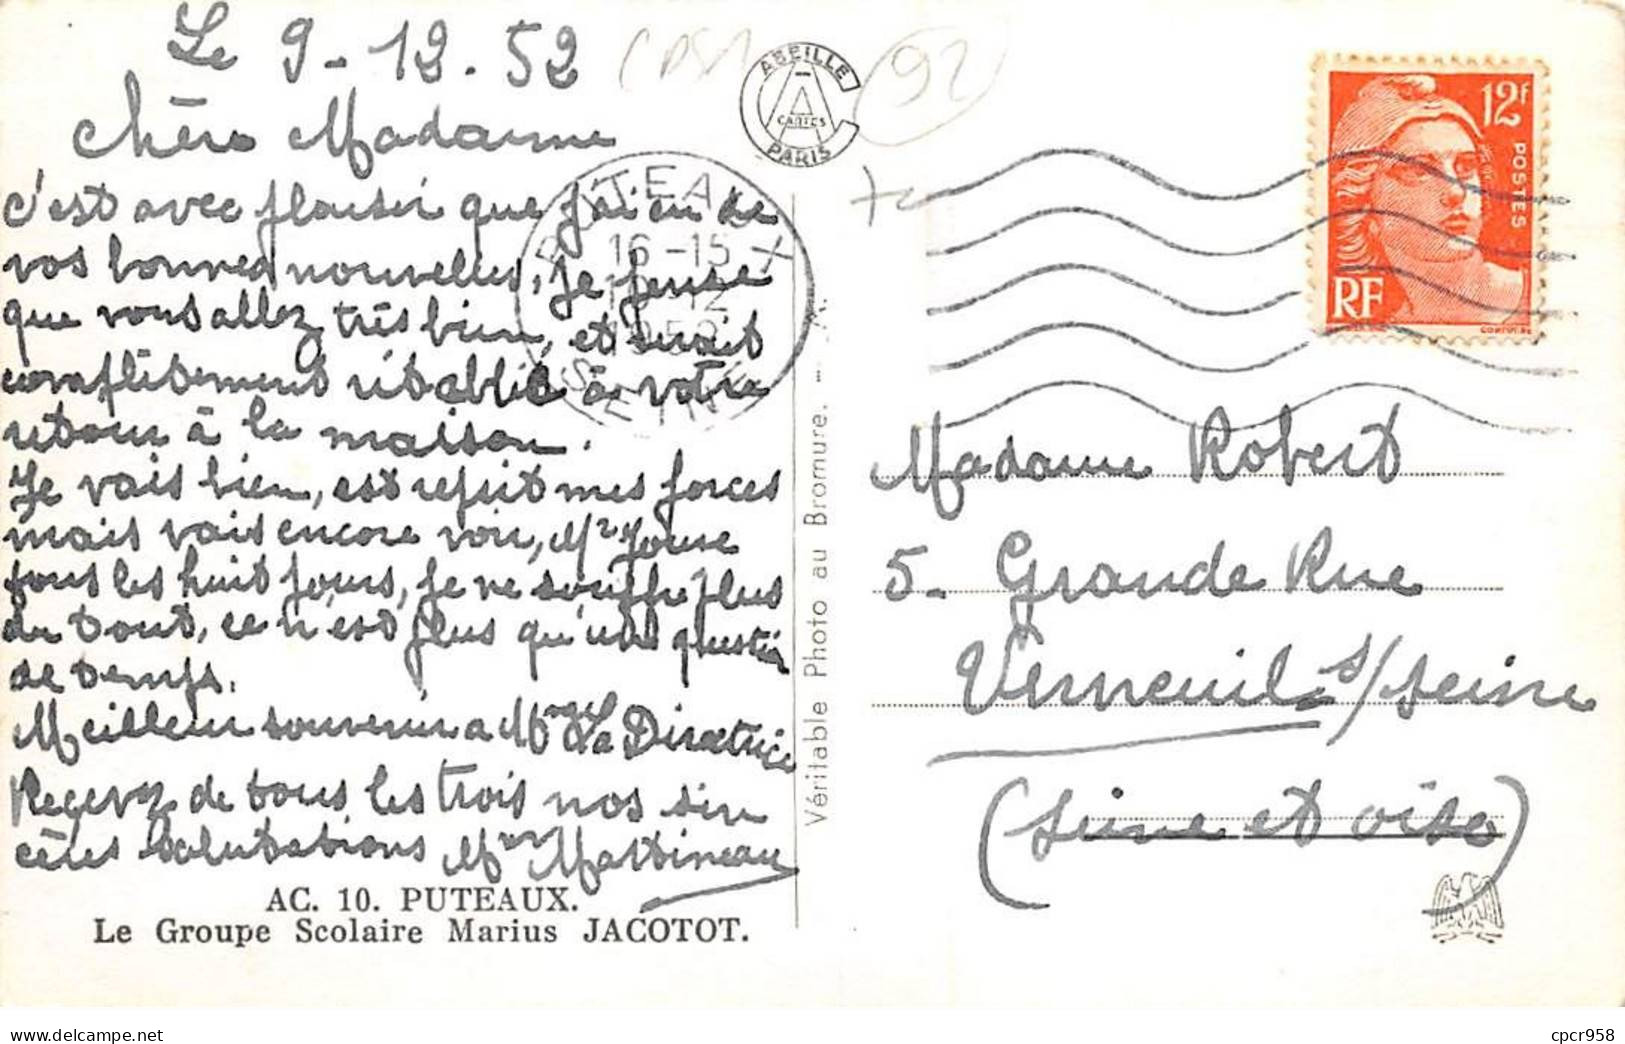 Le 9-12.52
(CPSM
92
ABEILLE
CARTES
PARIS
12f
POSTES
RF
PUTEAUX
16-15
12
1952
SEINE
chère Madame
c'est avec plaisir que j'ai eu de
vos bonnes nouvelles, je pense
que vous allez très bien, et serait
complètement rétablie à votre
retour à la maison.
Je vais bien, est repsit mes forces
mais vais encore voir, Mr
tous les huit jours, je ne souffre plus
du tout, ce n'est plus qu'une question
de temps.
Meilleur souvenir a Mme La Directrice
Recevez de tous les trois nos sin
cères salutations Mme Martineau
AC. 10. PUTEAUX.
Le Groupe Scolaire Marius JACOTOT.
Véritable Photo au Bromure. - A.
Madame Robert
5. Grande Rue
Verneuil s/seine
(seine et oise)
cpcr958